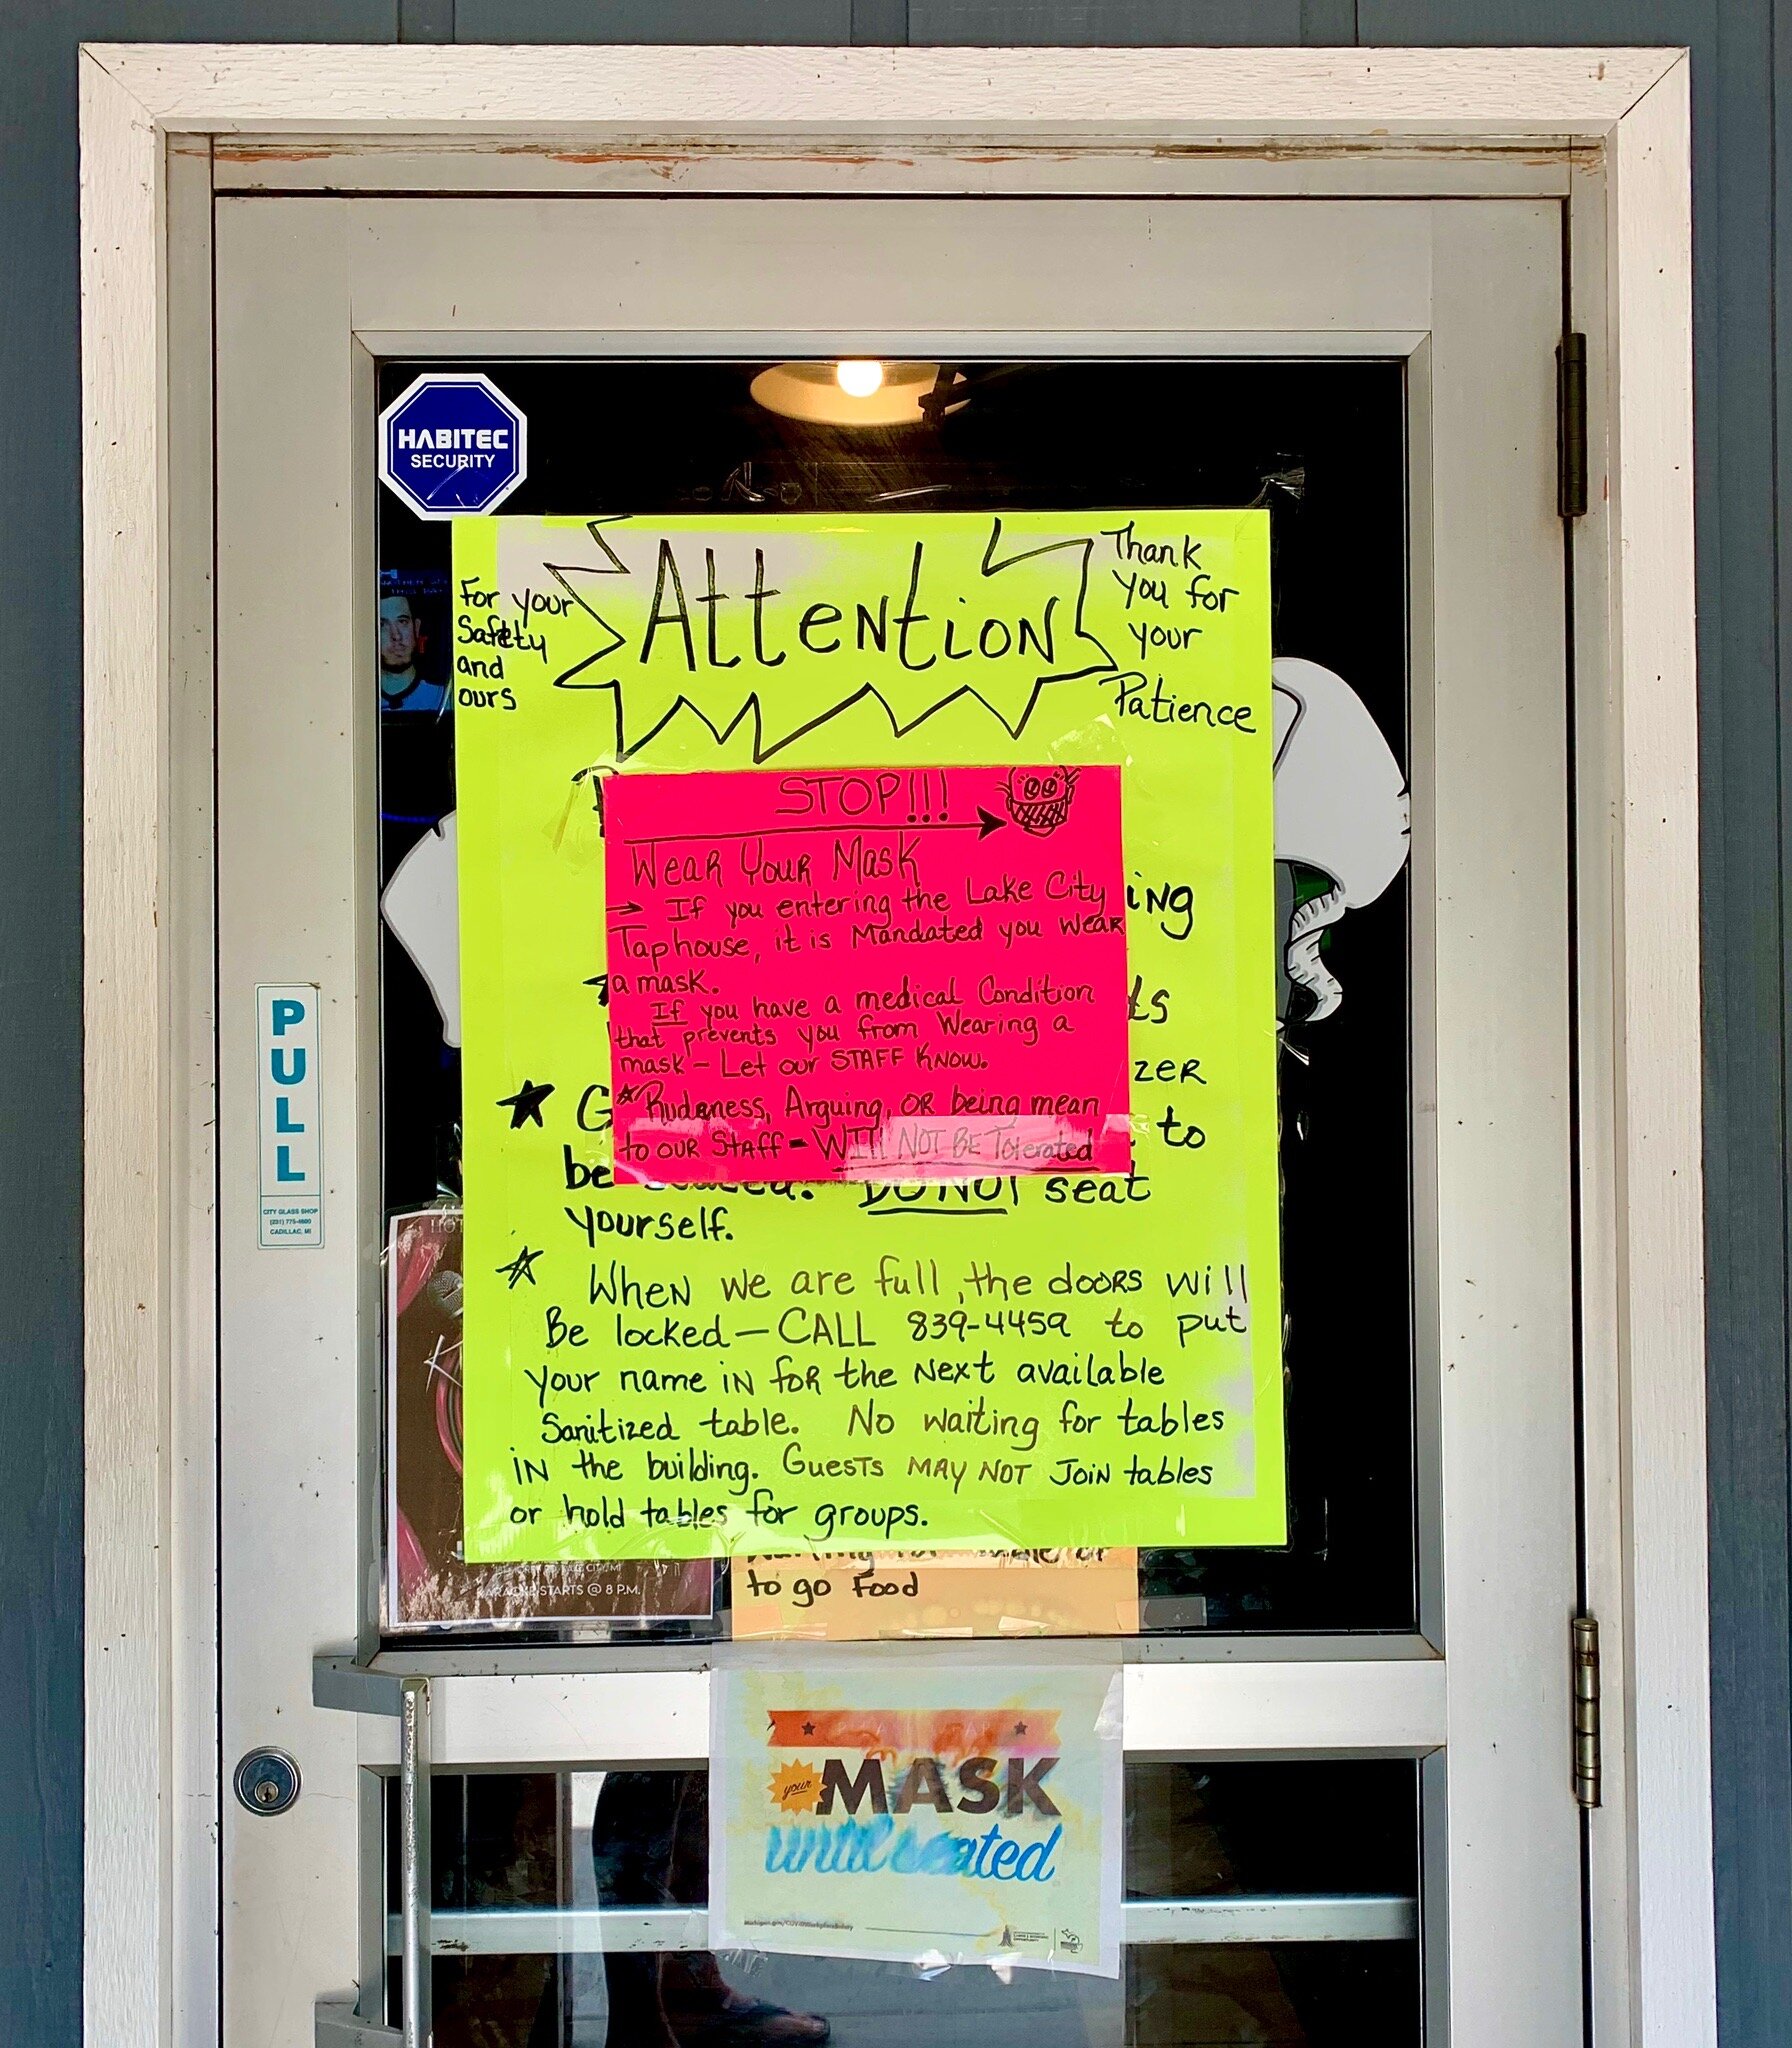 HABITEC
SECURITY
For your
Safety
and
ours
Attention
Thank
you for
your
Patience
STOP!!!
Wear Your Mask
→ If you entering the Lake City
Taphouse, it is Mandated you wear
a mask.
If you have a medical Condition
that prevents you from Wearing a
mask - Let our STAFF Know.
* Rudeness, Arguing, or being mean
to our Staff - WILL NOT BE Tolerated
ing
ts
zer
★ G
to
be seated. DO NOT seat
yourself.
☆ When we are full, the doors will
Be locked — CALL 839-4459 to put
your name in for the next available
Sanitized table. No waiting for tables
in the building. Guests may not join tables
or hold tables for groups.
PULL
CITY GLASS SHOP
(231) 775-4600
CADILLAC, MI
KARAOKE STARTS @ 8 P.M.
to go Food
your MASK
until seated